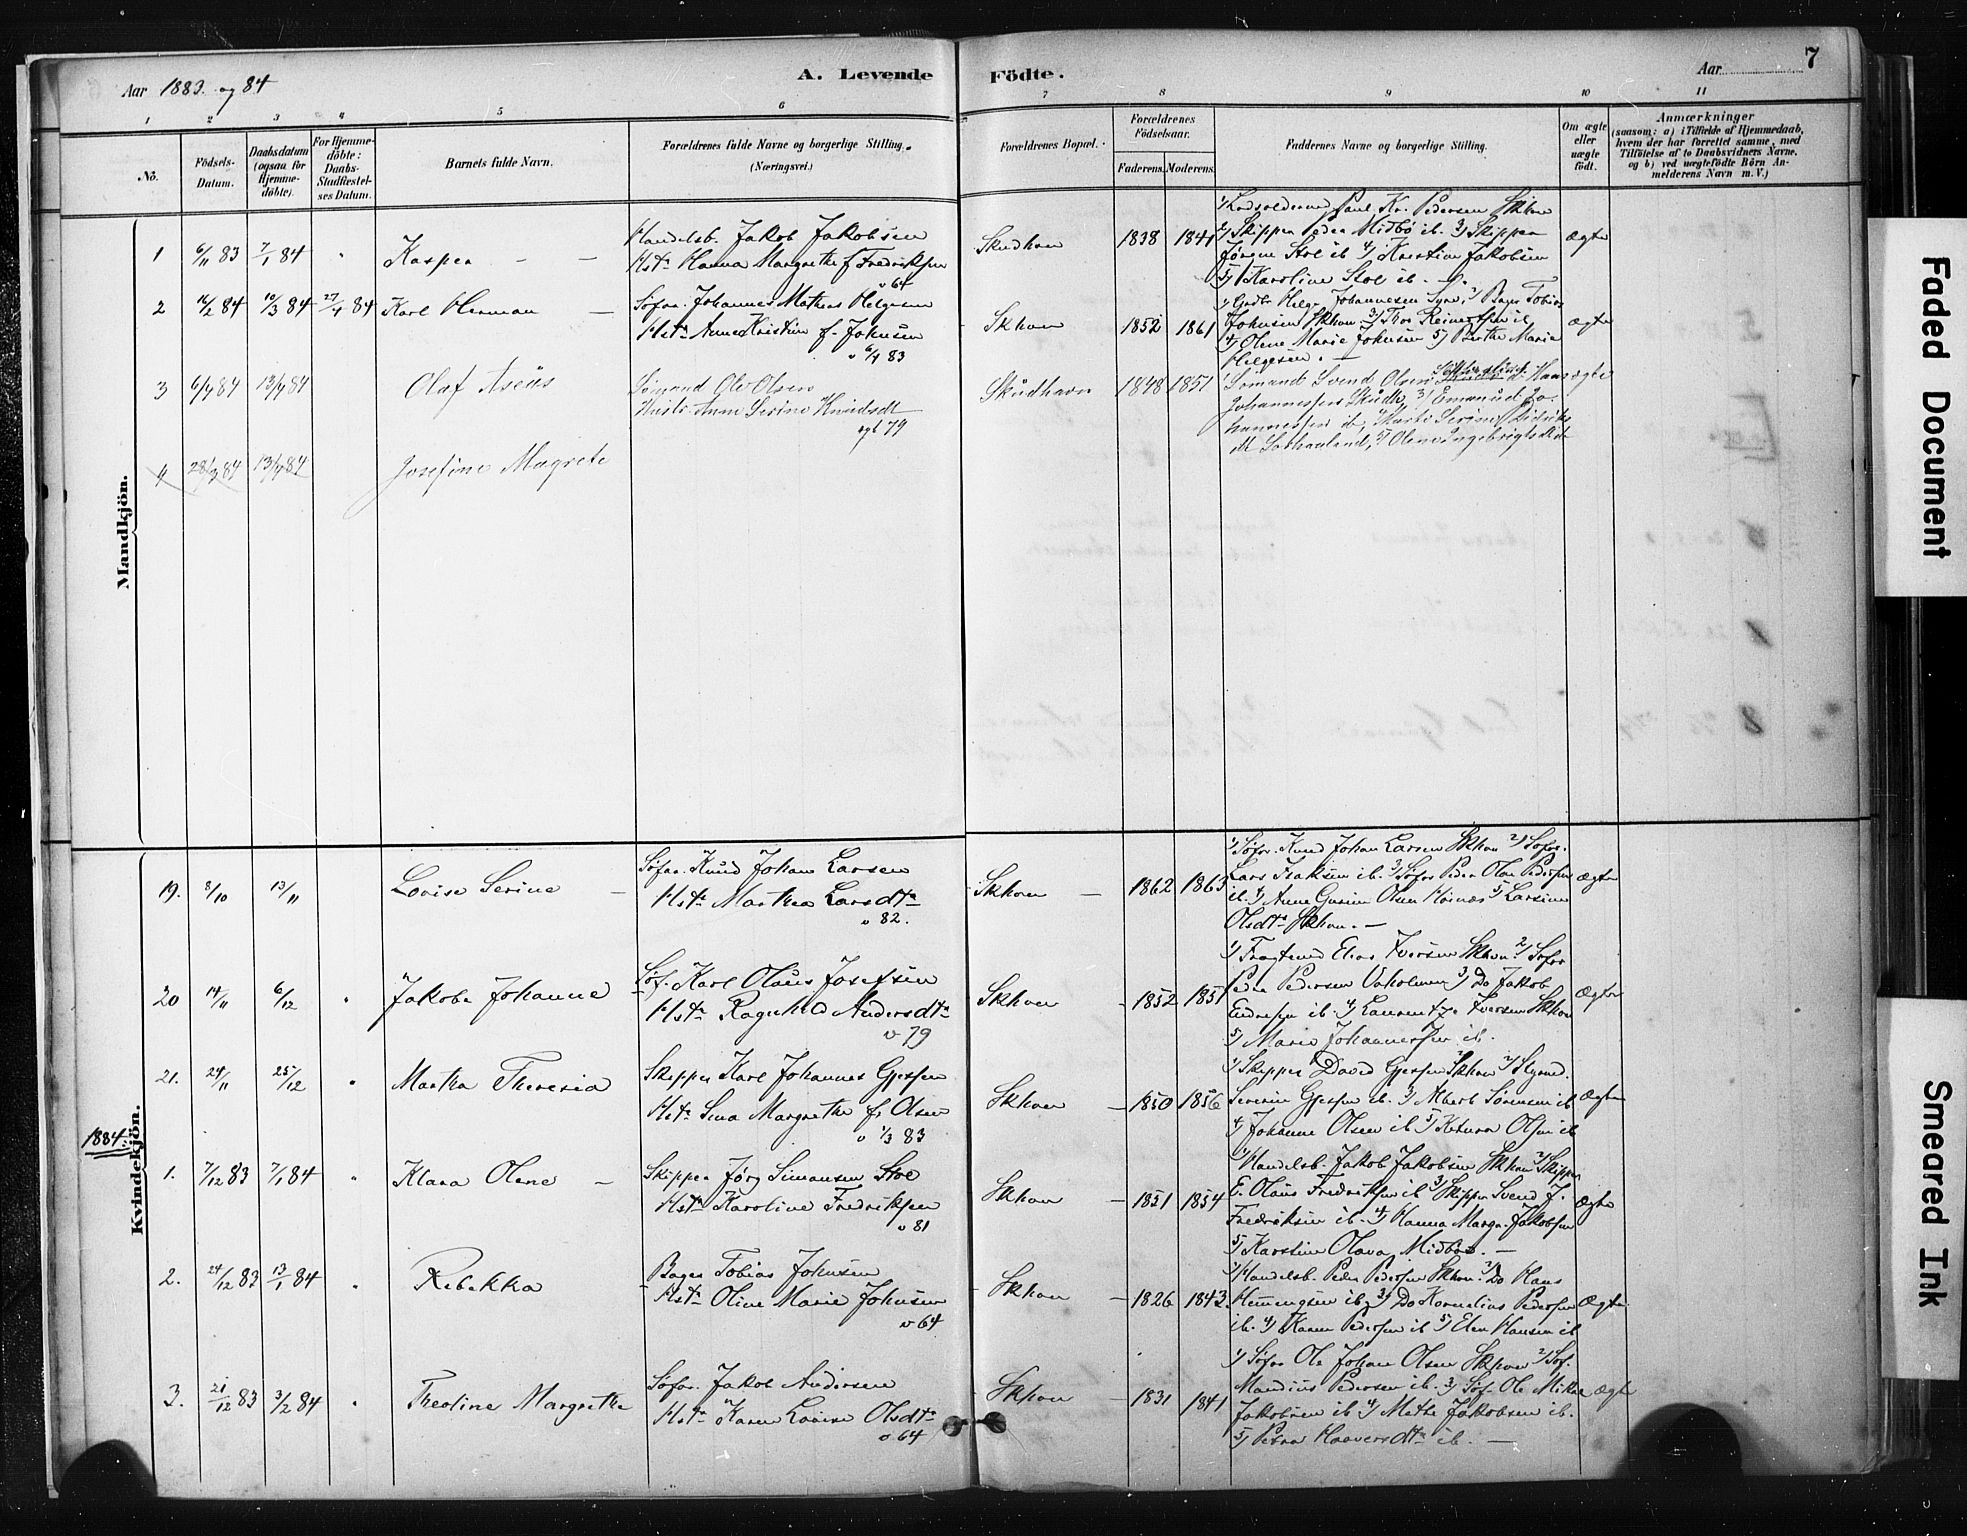 Aar 1883. og 84
A. Levende
Födte.
Aar
7
1 2 3 4 5 6 7 8 9 10 11
No.
Födsels-
Datum.
Daabsdatum
(ogsaa for
Hjemme-
döbte).
For Hjemme-
döbte:
Daabs-
Stadfestel-
ses Datum.
Barnets fulde Navn.
Forældrenes fulde Navne og borgerlige Stilling.
(Næringsvei.)
Forældrenes Bopæl.
Forældrenes
Födselsaar.
Faderens. Moderens.
Faddernes Navne og borgerlige Stilling.
Om ægte
eller
uægte
födt.
Anmærkninger
(saasom: a) i Tilfælde af Hjemmedaab,
hvem der har forrettet samme, med
Tilföielse af to Daabsvidners Navne,
og b) ved uægtefödte Börn An-
melderens Navn m. V.)
Mandkjön.
1 6/11 83 7/1 84 " Kasper
Handelsb. Jakob Jakobsen
Hst. Hanna Margrethe f. Fredriksen
v 64
Skudhvn 1838 1841
1) Lodsolderm. Paul Kr. Pedersen Skhvn
2) Skipper Peder Midbö ib. 3) Skipper
Jörgen Stol ib 4) Kristian Jakobsen
5) Karoline Stol ib.
Ægte
2 16/2 84 10/3 84 27/4 84 Karl Herman
Söfar. Johannes Mathias Helgesen
Hst. Anne Kristine f. Johnsen
v 6/4 83
Skhvn 1852 1861
1) Gadbr Helge Johannesen Syre, 2) Bager Tobias
Johnsen Skhvn 3) Thor Reinertsen ib
4) Oline Marie Johnsen 5) Berthe Marie
Helgesen.
Ægte
3 6/4 84 13/4 84 Olaf Aseus
Sömand Ole Olsen
Hustr. Anne Serine Knudsdt
egt. 79
Skudhavn 1848 1851
Sömand Svend Olsen
Johannessen Skudh, 3) Emanuel Jo-
hannessen ib,
5) Oline Ingebrigtsdt ib
ægte
4 28/3 84 13/4 84 Josefine Magrete
Kvindekjön.
19. 8/10 13/11 Lovise Serine
Söfar. Knud Johan Larsen
Hst. Marthea Larsdt
v 82.
Skhvn 1862 1863
1) Söfar. Knud Johan Larsen Skhvn 2) Söfar.
Lars Isaksen ib. 3) Söfar Peder Olai Pedersen
ib. 4) Anne Gurine Olsen Höines 5) Larsine
Olsdt. Skhvn.
Ægte
20 14/11 6/12 " Jakobe Johanne
Söf. Karl Olaus Josefsen
Hst. Ragnhild Andersdt.
v 79
Skhvn 1852 1851
1) Fragtemd Elias Iversen Skhvn 2) Söfar
Peder Pedersen Vaholmen 3) Do Jakob
Endresen ib. 4) Laurentze Iversen Skhvn
5) Marie Johannessen ib.
Ægte
21. 24/11 25/12 " Martha Theresia
Skipper Karl Johannes Gjessen
Hst. Sina Margrethe f. Olsen
v 1/3 83
Skhvn 1850 1856
1) Skipper David Gjessen Skhvn 2) Styrmd.
Severin Gjessen ib. 3) Albert Sörensen ib
4) Johanne Olsen ib 5) Ketura Olsen ib
Ægte
1884.
1. 7/12 83 7/1 84 " Klara Olene
Skipper Jörg Simonsen Stol
Hst. Karoline Fredriksen
v 81
Skhvn 1851 1854
1) Handelsb. Jakob Jakobsen Skhvn 2) Skipper
E. Olaus Fredriksen ib 3) Skipper Svend J.
Fredriksen ib. 4) Hanna Margr. Jakobsen
5) Karstine Olava Midböe.
Ægte
2. 24/12 83 13/1 84 " Rebekka
Bager Tobias Johnsen
Hst. Oline Marie Johnsen
v 64
Skhvn 1826 1843.
1) Handelsb. Peder Pedersen Skhvn 2) Do Hans
Hemmingsen ib. 3) Do Kornelius Pedersen
ib. 4) Karen Pedersen ib 5) Elen Hansen ib
Ægte
3. 21/12 83 3/2 84 " Theoline Margrethe
Söfar. Jakob Andersen
Hst. Karen Lovise Olsdt.
v 64
Skhvn 1831 1841
1) Söfar Ole Johan Olsen Skhvn 2) Söf.
Mandius Pedersen ib. 3) Söf. Ole Mikal
Jakobsen ib 4) Mette Jakobsen ib.
5) Petra Haaversdt. ib.
Ægte
Faded Document
Smeared Ink